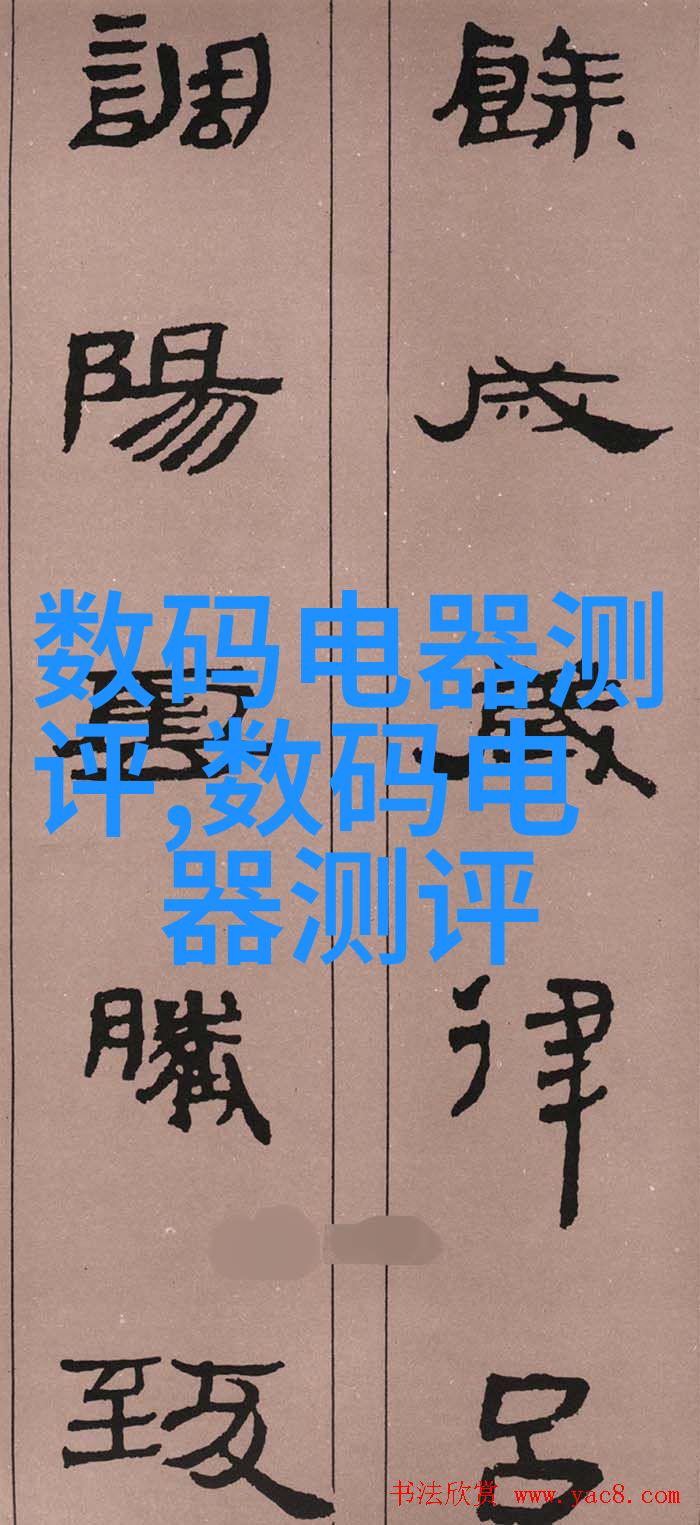 餘成歲律呂
調陽雲騰致
数码电器测
评,数码电
器测评
书法欣赏 www.yac8.com